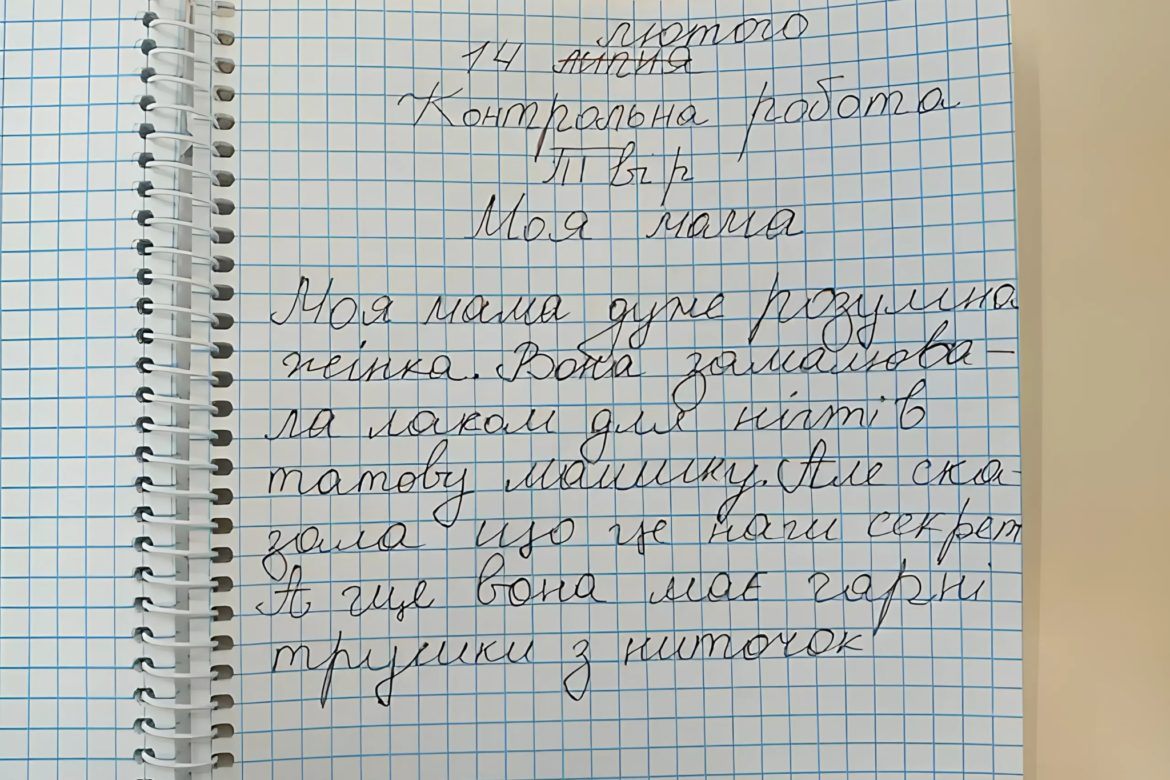 лютого
14 липня
Контрольна робота
Твір
Моя мама
Моя мама дуже розумна
жінка. Вона замалюва-
ла лаком для нігтів
татову машину. Але ска-
зала що це наш секрет
А ще вона має гарні
трушки з ниточок